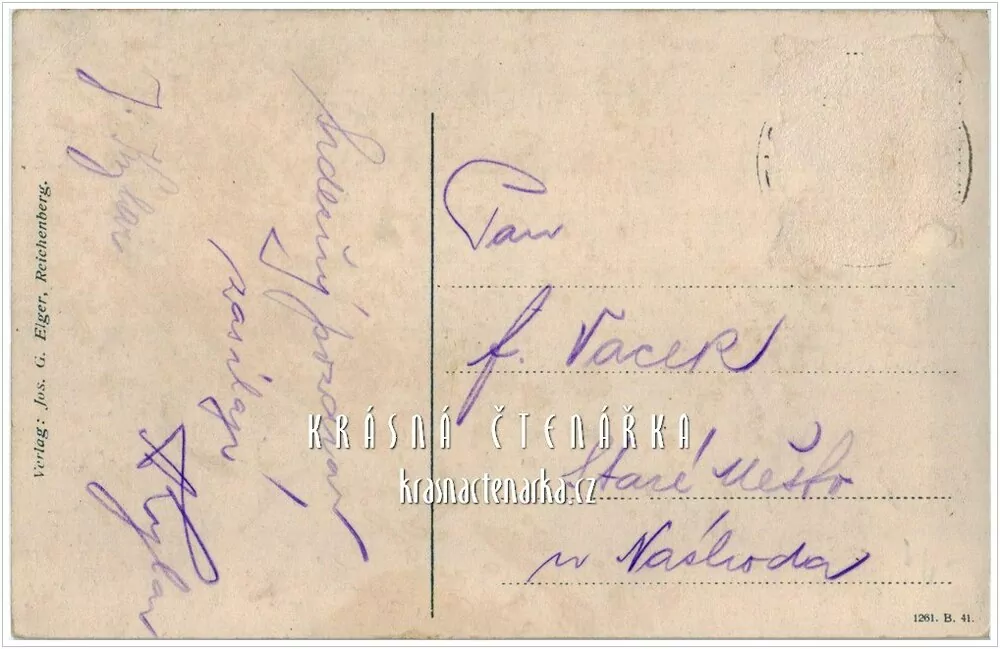 Srdečný pozdrav
zasílají
J. Kylar
Kylar
Verlag: Jos. G. Elger, Reichenberg.
Pan
f. Vacek
Staré Město
u Náchoda
KRÁSNÁ ČTENÁŘKA
krasnactenarka.cz
1261. B. 41.